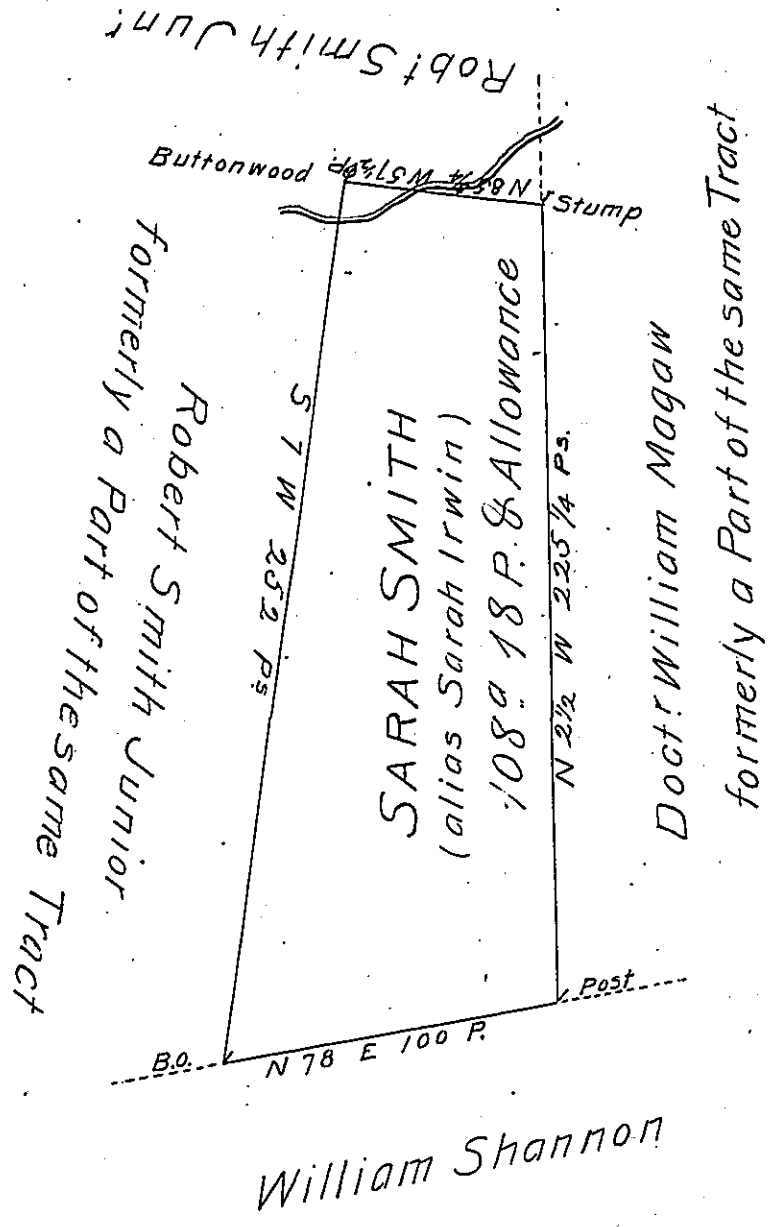 Robt. Smith Junr.
Buttonwood
N 85 3/4 W 51 1/2 P.
Stump
S 7 W 252 Ps.
Robert Smith Junior
formerly a Part of the same Tract
SARAH SMITH
(alias Sarah Irwin)
108a. 18 P. & Allowance
N 2 1/2 W 225 1/4 Ps.
Doctr. William Magaw
formerly a Part of the same Tract
Post
B.O.
N 78 E 100 P.
William Shannon